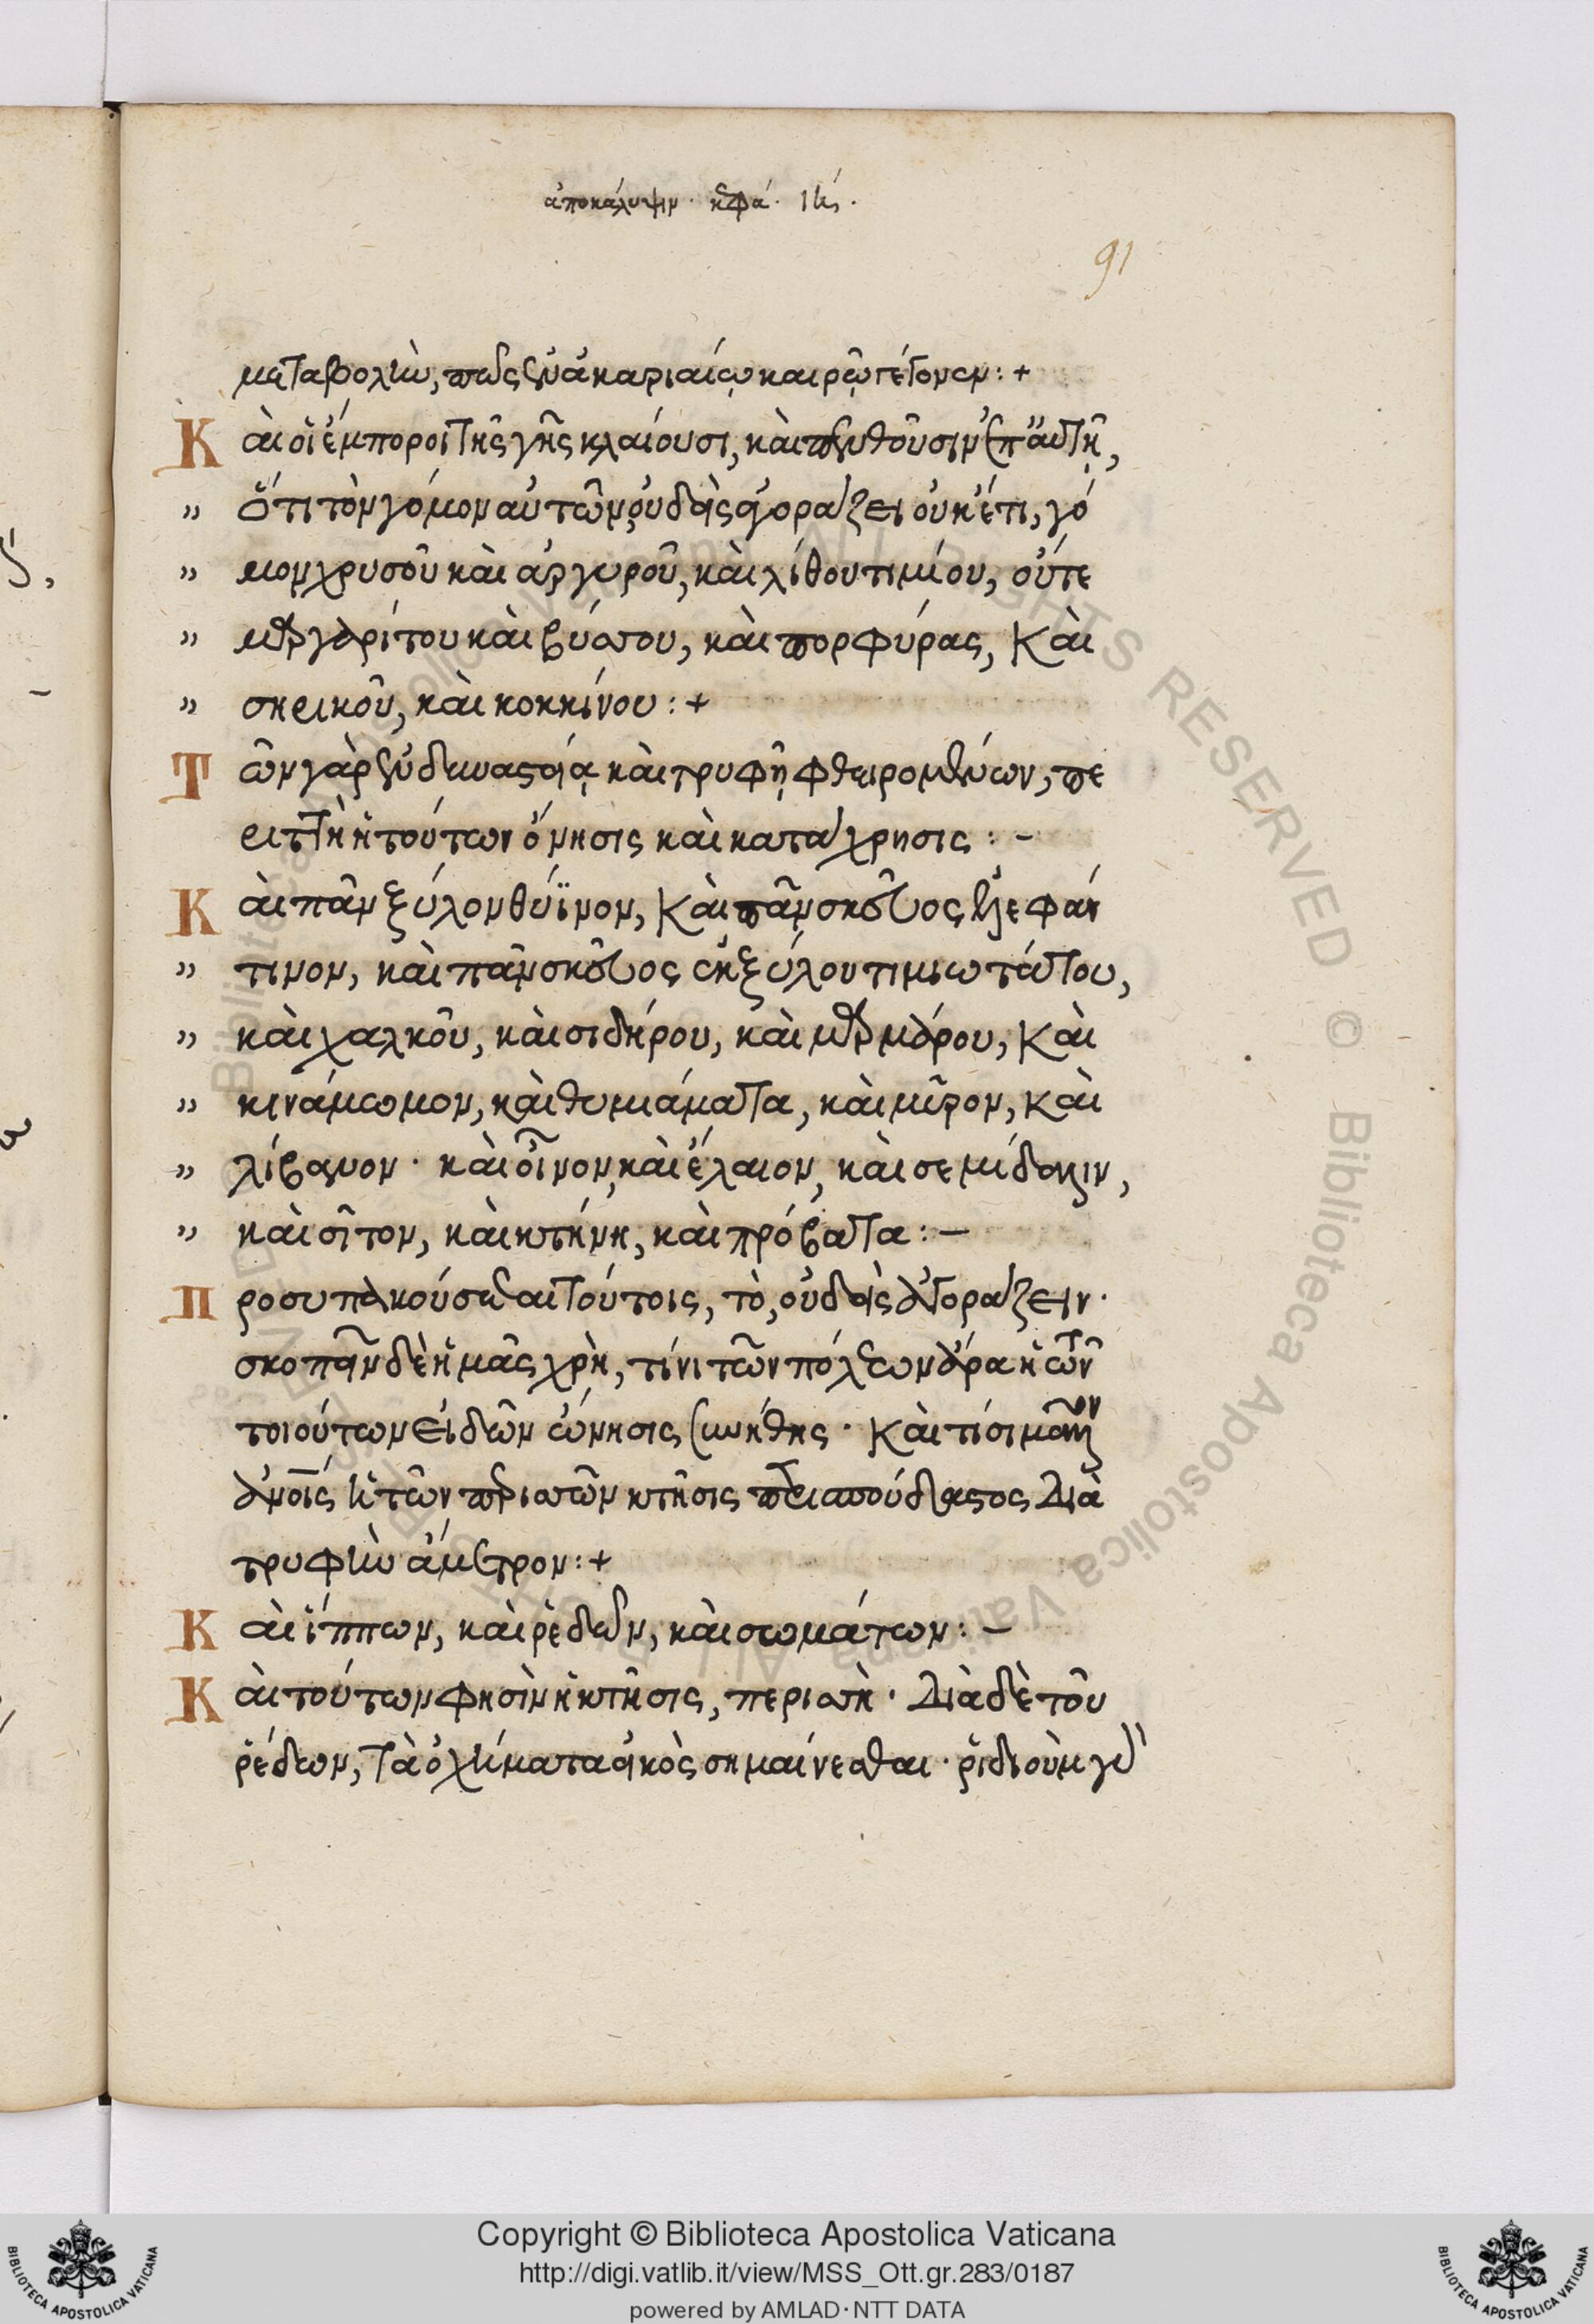 ἀποκάλυψιν· κεφά· ιη·
91
μεταβολὴν, πῶς ἐν ἀκαριαίῳ καιρῷ γέγονεν:+
Καὶ οἱ ἔμποροι τῆς γῆς κλαίουσι, καὶ πενθοῦσιν ἐπ' αὐτῇ,
" ὅτι τὸν γόμον αὐτῶν οὐδεὶς ἀγοράζει οὐκ ἔτι, γό
" μον χρυσοῦ καὶ ἀργυροῦ, καὶ λίθου τιμίου, οὔτε
" μαργαρίτου καὶ βύσσου, καὶ πορφύρας, Καὶ
" σηρικοῦ, καὶ κοκκίνου:+
Τῶν γὰρ ἐν δυναστείᾳ καὶ τρυφῇ φθειρομένων, πε
ριττὴ ἡ τούτων ὄνησις καὶ κατάχρησις:–
Καὶ πᾶν ξύλον θύϊνον, Καὶ πᾶν σκεῦος ἐλεφάν
" τινον, καὶ πᾶν σκεῦος ἐκ ξύλου τιμιωτάτου,
" καὶ χαλκοῦ, καὶ σιδήρου, καὶ μαρμάρου, Καὶ
" κινάμωμον, καὶ θυμιάματα, καὶ μῦρον, καὶ
" λίβανον· καὶ οἶνον, καὶ ἔλαιον, καὶ σεμίδαλιν,
" καὶ σῖτον, καὶ κτήνη, καὶ πρόβατα:–
Προσυπακούσεται τούτοις, τὸ, οὐδεὶς ἀγοράζειν·
σκοπεῖν δὲ ἡμᾶς χρὴ, τίνι τῶν πόλεων ἄρα ἡ τῶν
τοιούτων εἰδῶν ὤνησις συνήθης· Καὶ τίσι μᾶλλον
ἀνοις ἡ τῶν περισσῶν κτῆσις περισπούδαστος Διὰ
τρυφὴν ἄμετρον:+
Καὶ ἵππων, καὶ ῥεδῶν, καὶ σωμάτων:–
Καὶ τούτων φησὶν ἡ κτῆσις, περισσὴ· Διὰ δὲ τοῦ
ῥέδων, τὰ ὀχήματα εἰκὸς σημαίνεσθαι· ῥιδιοὺμ γὰρ
Copyright © Biblioteca Apostolica Vaticana
http://digi.vatlib.it/view/MSS_Ott.gr.283/0187
powered by AMLAD·NTT DATA